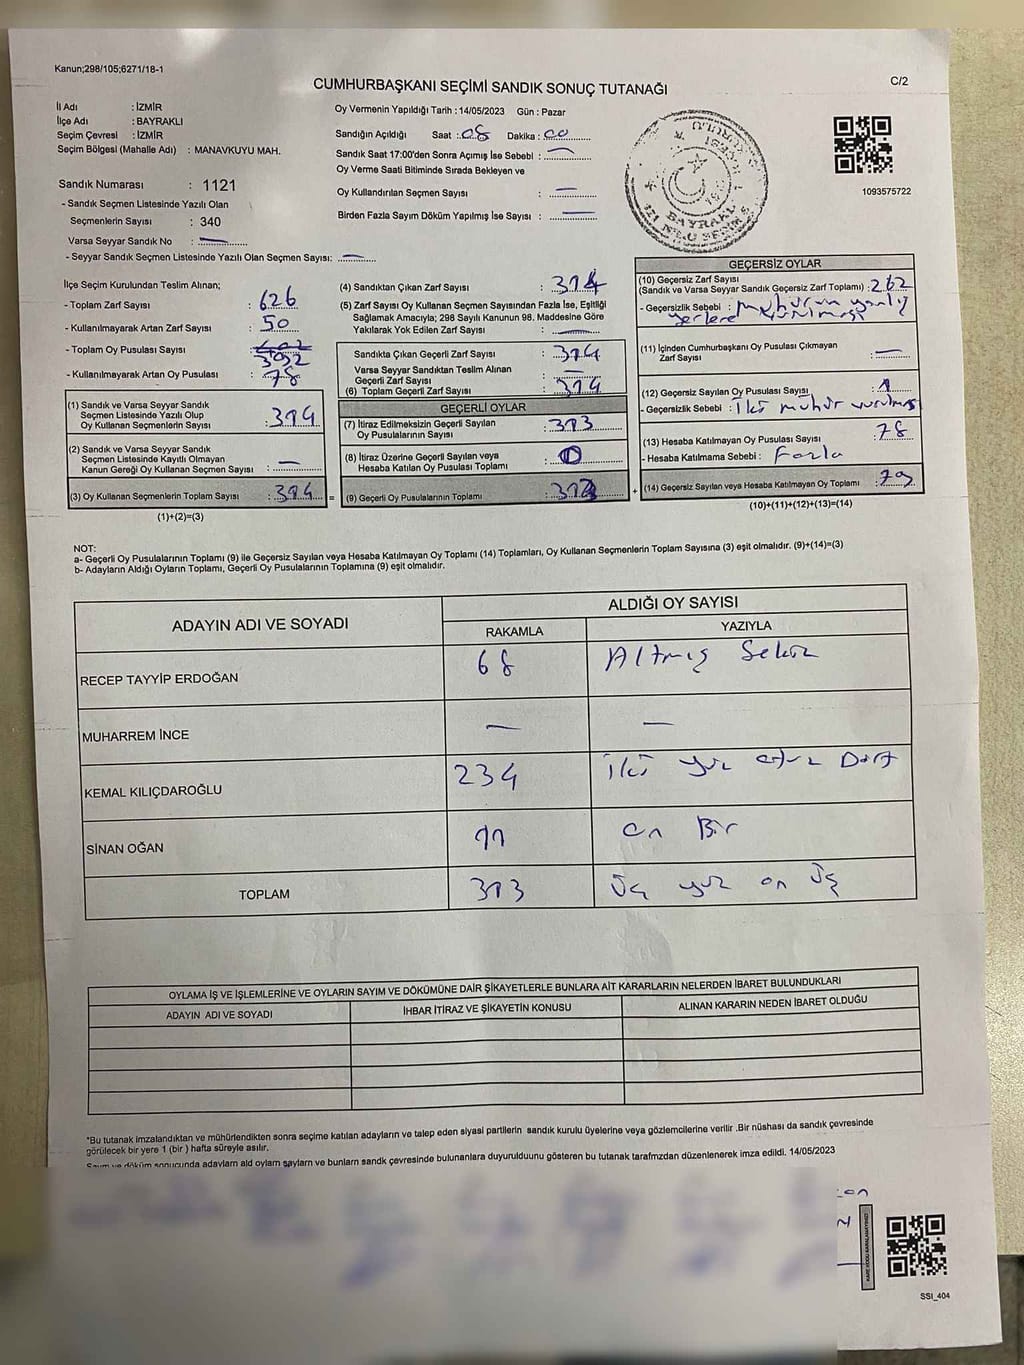 Kanun;298/105;6271/18-1
C/2
CUMHURBAŞKANI SEÇİMİ SANDIK SONUÇ TUTANAĞI
İl Adı : İZMİR
İlçe Adı : BAYRAKLI
Seçim Çevresi : İZMİR
Seçim Bölgesi (Mahalle Adı) : MANAVKUYU MAH.
Sandık Numarası : 1121
- Sandık Seçmen Listesinde Yazılı Olan
Seçmenlerin Sayısı : 340
Varsa Seyyar Sandık No : —
- Seyyar Sandık Seçmen Listesinde Yazılı Olan Seçmen Sayısı: —
Oy Vermenin Yapıldığı Tarih : 14/05/2023 Gün : Pazar
Sandığın Açıldığı Saat : 08 Dakika : 00
Sandık Saat 17:00'den Sonra Açmış İse Sebebi : —
Oy Verme Saati Bitiminde Sırada Bekleyen ve
Oy Kullandırılan Seçmen Sayısı : —
Birden Fazla Sayım Döküm Yapılmış İse Sayısı : —
BAYRAKLI
1093575722
İlçe Seçim Kurulundan Teslim Alınan;
- Toplam Zarf Sayısı : 626
- Kullanılmayarak Artan Zarf Sayısı : 50
- Toplam Oy Pusulası Sayısı : 392
- Kullanılmayarak Artan Oy Pusulası : 78
(1) Sandık ve Varsa Seyyar Sandık
Seçmen Listesinde Yazılı Olup
Oy Kullanan Seçmenlerin Sayısı : 314
(2) Sandık ve Varsa Seyyar Sandık
Seçmen Listesinde Kayıtlı Olmayan
Kanun Gereği Oy Kullanan Seçmen Sayısı : —
(3) Oy Kullanan Seçmenlerin Toplam Sayısı : 314
(1)+(2)=(3)
(4) Sandıktan Çıkan Zarf Sayısı : 314
(5) Zarf Sayısı Oy Kullanan Seçmen Sayısından Fazla İse, Eşitliği
Sağlamak Amacıyla; 298 Sayılı Kanunun 98. Maddesine Göre
Yakılarak Yok Edilen Zarf Sayısı : —
Sandıkta Çıkan Geçerli Zarf Sayısı : 314
Varsa Seyyar Sandıktan Teslim Alınan
Geçerli Zarf Sayısı : —
(6) Toplam Geçerli Zarf Sayısı : 314
GEÇERLİ OYLAR
(7) İtiraz Edilmeksizin Geçerli Sayılan
Oy Pusulalarının Sayısı : 313
(8) İtiraz Üzerine Geçerli Sayılan veya
Hesaba Katılan Oy Pusulası Toplamı : 0
= (9) Geçerli Oy Pusulalarının Toplamı : 313
GEÇERSİZ OYLAR
(10) Geçersiz Zarf Sayısı
(Sandık ve Varsa Seyyar Sandık Geçersiz Zarf Toplamı) : 262
- Geçersizlik Sebebi : Mühürün yanlış
yerlere vurulması
(11) İçinden Cumhurbaşkanı Oy Pusulası Çıkmayan
Zarf Sayısı : —
(12) Geçersiz Sayılan Oy Pusulası Sayısı : 1
- Geçersizlik Sebebi : İki mühür vurulmuş
(13) Hesaba Katılmayan Oy Pusulası Sayısı : 78
- Hesaba Katılmama Sebebi : Fazla
+ (14) Geçersiz Sayılan veya Hesaba Katılmayan Oy Toplamı : 79
(10)+(11)+(12)+(13)=(14)
NOT:
a- Geçerli Oy Pusulalarının Toplamı (9) ile Geçersiz Sayılan veya Hesaba Katılmayan Oy Toplamı (14) Toplamları, Oy Kullanan Seçmenlerin Toplam Sayısına (3) eşit olmalıdır. (9)+(14)=(3)
b- Adayların Aldığı Oyların Toplamı, Geçerli Oy Pusulalarının Toplamına (9) eşit olmalıdır.
ADAYIN ADI VE SOYADI
ALDIĞI OY SAYISI
RAKAMLA YAZIYLA
RECEP TAYYİP ERDOĞAN 68 Altmış Sekiz
MUHARREM İNCE — —
KEMAL KILIÇDAROĞLU 234 iki yüz otuz Dört
SİNAN OĞAN 11 on Bir
TOPLAM 313 Üç yüz on üç
OYLAMA İŞ VE İŞLEMLERİNE VE OYLARIN SAYIM VE DÖKÜMÜNE DAİR ŞİKAYETLERLE BUNLARA AİT KARARLARIN NELERDEN İBARET BULUNDUKLARI
ADAYIN ADI VE SOYADI İHBAR İTİRAZ VE ŞİKAYETİN KONUSU ALINAN KARARIN NEDEN İBARET OLDUĞU
*Bu tutanak imzalandıktan ve mühürlendikten sonra seçime katılan adayların ve talep eden siyasi partilerin sandık kurulu üyelerine veya gözlemcilerine verilir .Bir nüshası da sandık çevresinde
görülecek bir yere 1 (bir ) hafta süreyle asılır.
Sayım ve döküm sonucunda adayların ald oyların sayları ve bunların sandk çevresinde bulunanlara duyurulduunu gösteren bu tutanak tarafmzdan düzenlenerek imza edildi. 14/05/2023
SSI_404